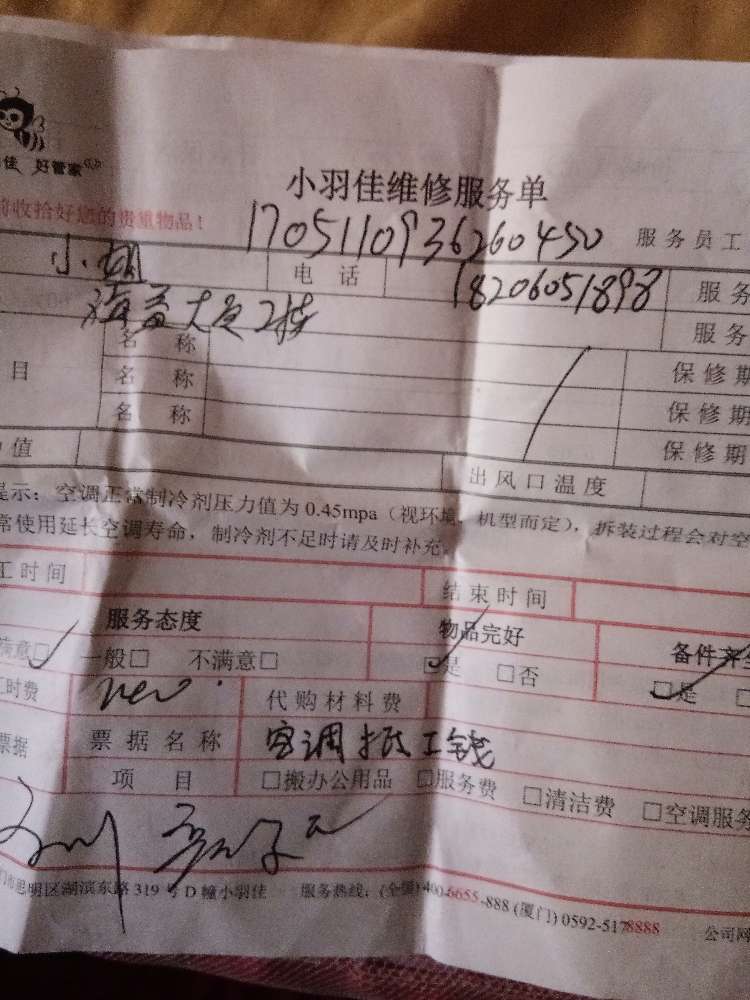 佳 好管家
小羽佳维修服务单
前收拾好您的贵重物品!
1705110936260450 服务员工
小姐 电话 18206051898 服务
大厦2楼 服务
名称
目 名称 保修期
名称 保修期
保修期
值 出风口温度
提示:空调正常制冷剂压力值为0.45mpa(视环境、机型而定),拆装过程会对空
常使用延长空调寿命,制冷剂不足时请及时补充。
工时间 结束时间
服务态度 物品完好 备件齐全
满意□ 一般□ 不满意□ □是 □否 □是
工时费 代购材料费
票据 票据名称 空调 工钱
项目 □搬办公用品 □服务费 □清洁费 □空调服务
门市思明区湖滨东路319号D幢小羽佳 服务热线:(全国)400-6655-888 (厦门)0592-5178888 公司网